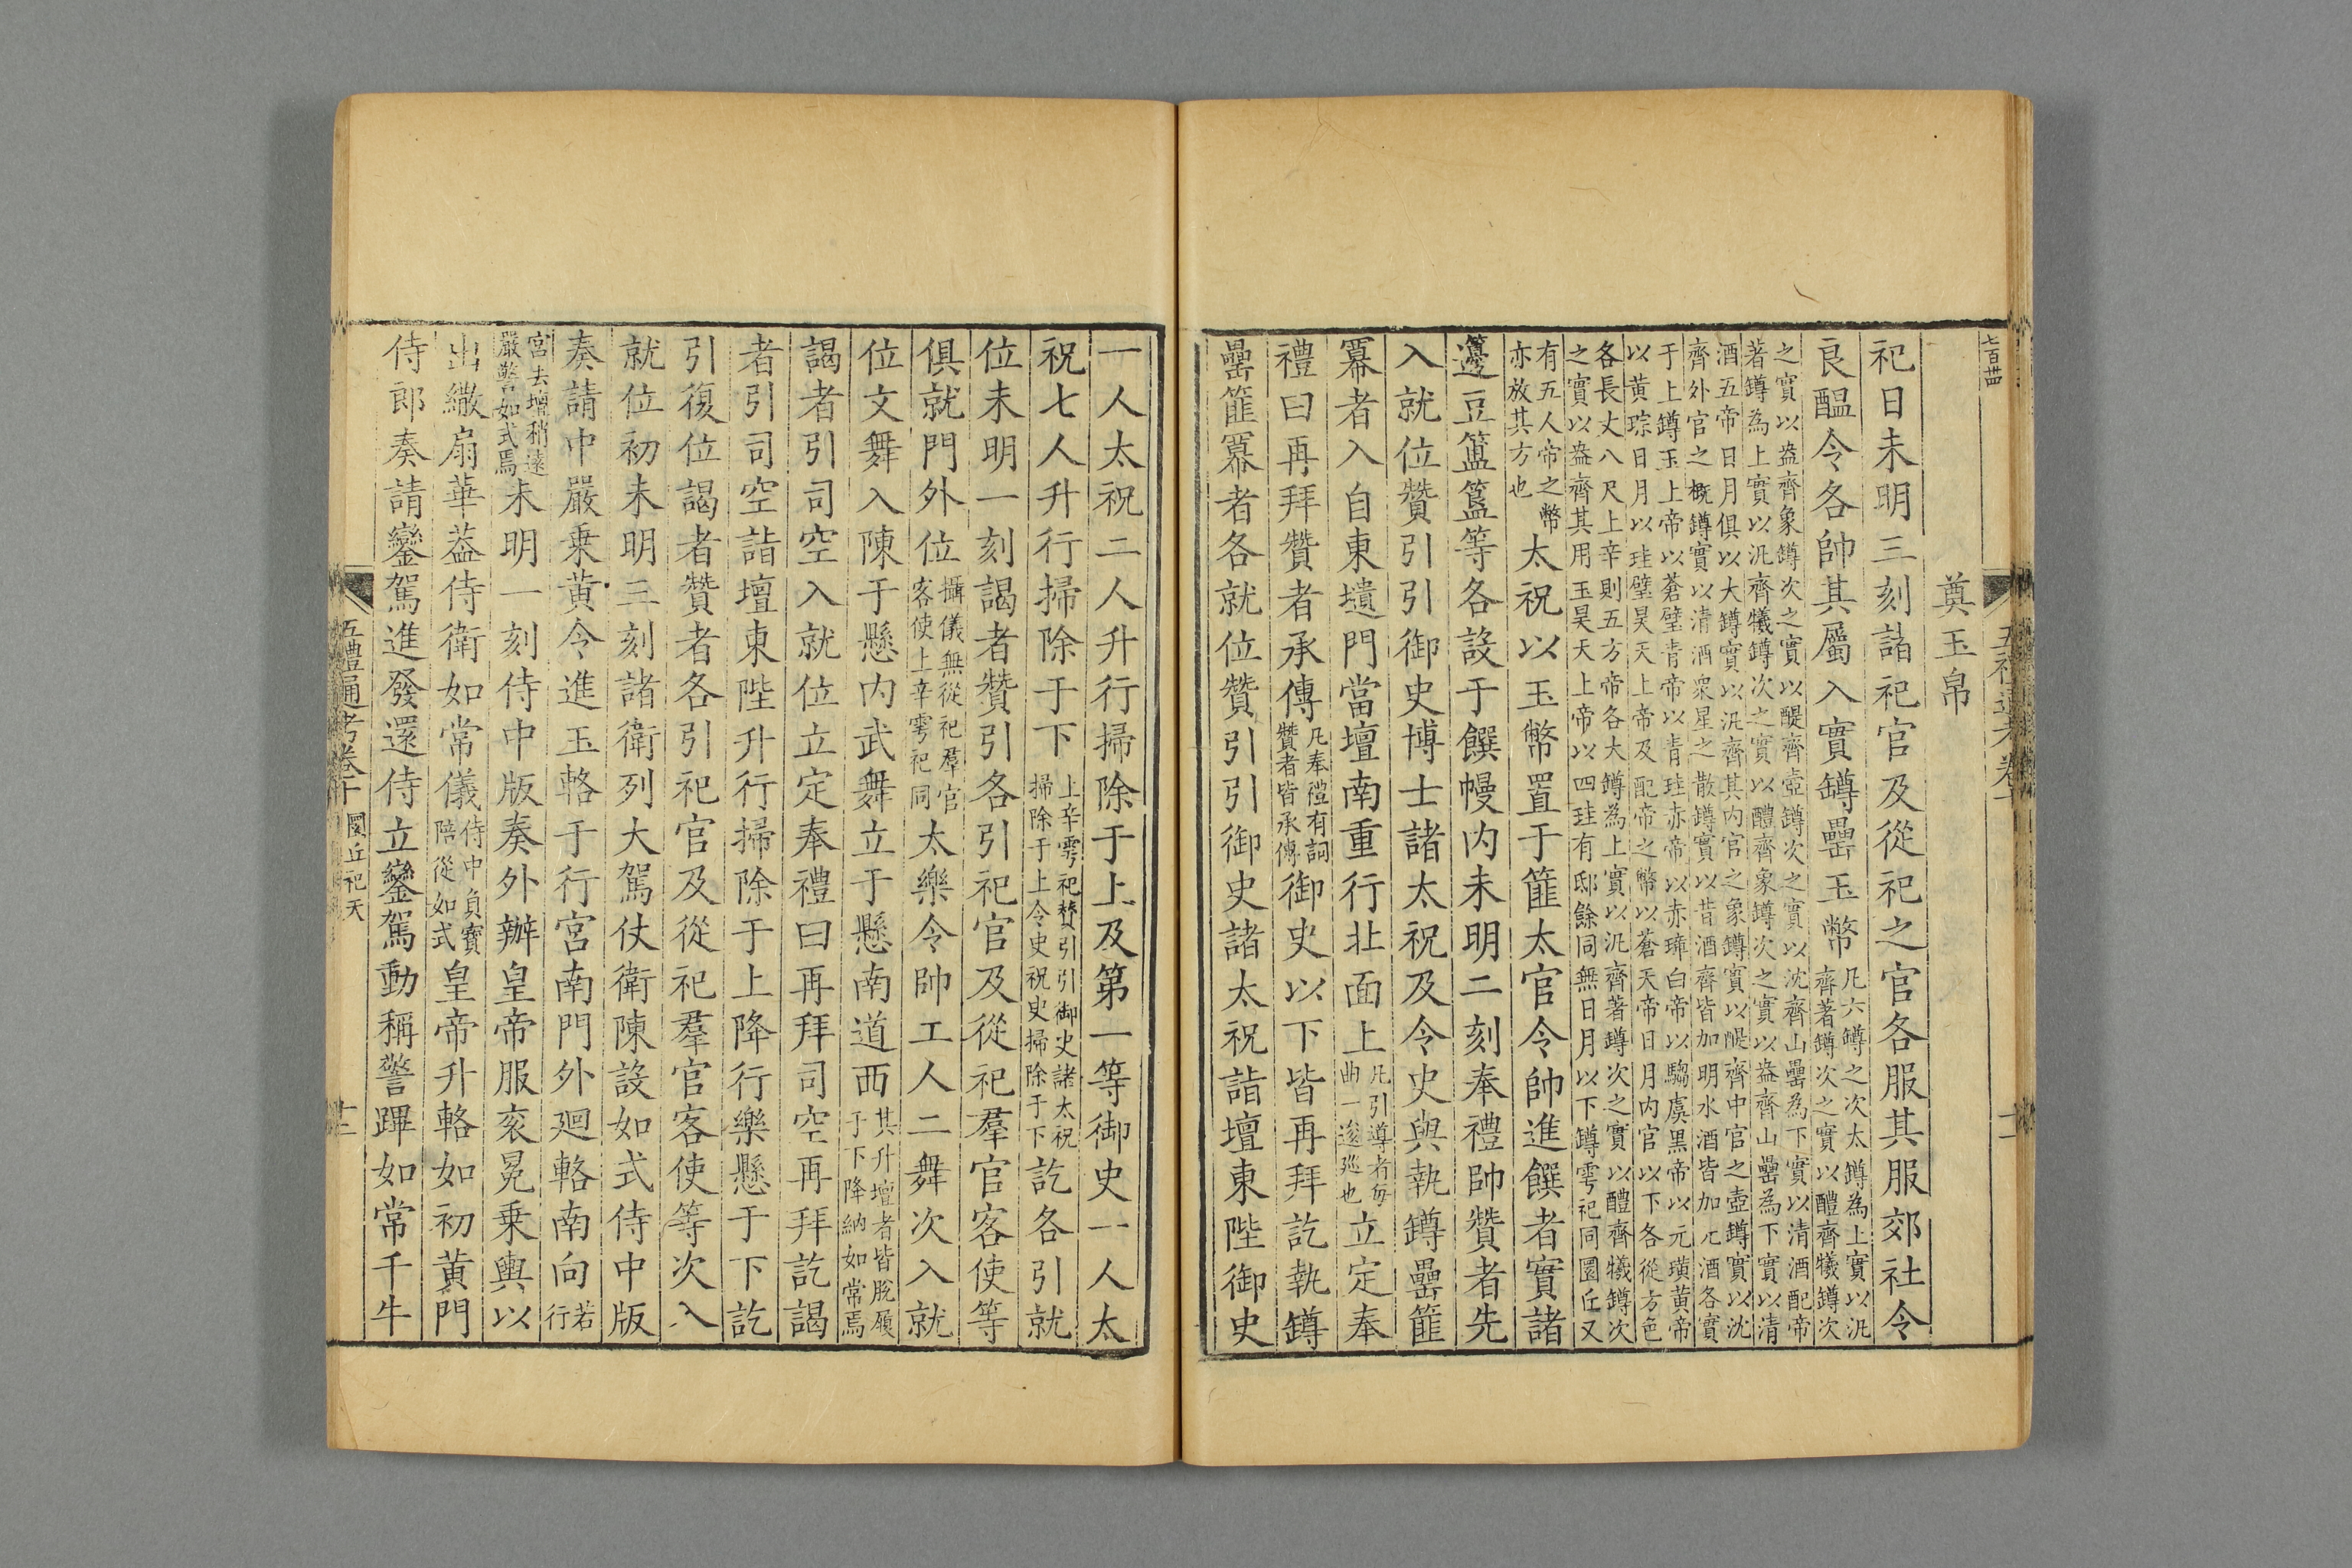 奠玉帛
祀日未明三刻諸祀官及從祀之官各服其服郊社令
良醖令各帥其屬入實鐏罍玉幣凡六鐏之次太鐏為上實以汎齊著鐏次之實以醴齊犧鐏次
之實以盎齊象鐏次之實以醍齊壺鐏次之實以沈齊山罍為下實以清酒配帝
著鐏為上實以汎齊犧鐏次之實以醴齊象鐏次之實以盎齊山罍為下實以清
酒五帝日月俱以大鐏實以汎齊其内官之象鐏實以醍齊中官之壺鐏實以沈
齊外官之概鐏實以清酒衆星之散鐏實以昔酒齊皆加明水酒皆加元酒各實
于上鐏玉上帝以蒼璧青帝以青珪赤帝以赤璋白帝以騶虞黑帝以元璜黄帝
以黄琮日月以珪璧昊天上帝及配帝之幣以蒼天帝日月内官以下各從方色
各長丈八尺上辛則五方帝各大鐏為上實以汎齊著鐏次之實以醴齊犧鐏次
之實以盎齊其用玉昊天上帝以四珪有邸餘同無日月以下鐏雩祀同圜丘又
有五人帝之幣亦放其方也太祝以玉幣置于篚太官令帥進饌者實諸
籩豆簠簋等各設于饌幔内未明二刻奉禮帥贊者先
入就位贊引引御史博士諸太祝及令史與執鐏罍篚
冪者入自東壝門當壇南重行北面上凡引導者每曲一逡廵也立定奉
禮曰再拜贊者承傳凡奉禮有詞贊者皆承傳御史以下皆再拜訖執鐏
罍篚冪者各就位贊引引御史諸太祝詣壇東陛御史
一人太祝二人升行掃除于上及第一等御史一人太
祝七人升行掃除于下上辛雩祀贊引引御史諸太祝掃除于上令史祝史掃除于下訖各引就
位未明一刻謁者贊引各引祀官及從祀羣官客使等
俱就門外位攝儀無從祀羣官客使上辛雩祀同太樂令帥工人二舞次入就
位文舞入陳于懸内武舞立于懸南道西其升壇者皆脫履于下降納如常焉
謁者引司空入就位立定奉禮曰再拜司空再拜訖謁
者引司空詣壇東陛升行掃除于上降行樂懸于下訖
引復位謁者贊者各引祀官及從祀羣官客使等次入
就位初未明三刻諸衛列大駕仗衛陳設如式侍中版
奏請中嚴乗黄令進玉輅于行宮南門外廻輅南向若行
宮去壇稍遠嚴警如式焉未明一刻侍中版奏外辦皇帝服衮冕乗輿以
出繖扇華葢侍衛如常儀侍中負寶陪從如式皇帝升輅如初黄門
侍郎奏請鑾駕進發還侍立鑾駕動稱警蹕如常千牛
五禮通考卷十 圜丘祀天